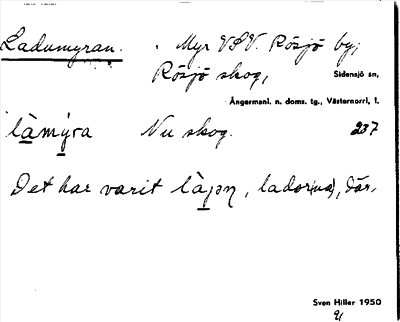 Ladumyran. . Myr VSV. Rösjö by,
Rösjö skog, Sidensjö sn,
Ångermanl. n. doms. tg., Västernorrl. l.
làmýra Nu skog. 237
Det har varit làjǝn, lador(na), där.
Sven Hiller 1950